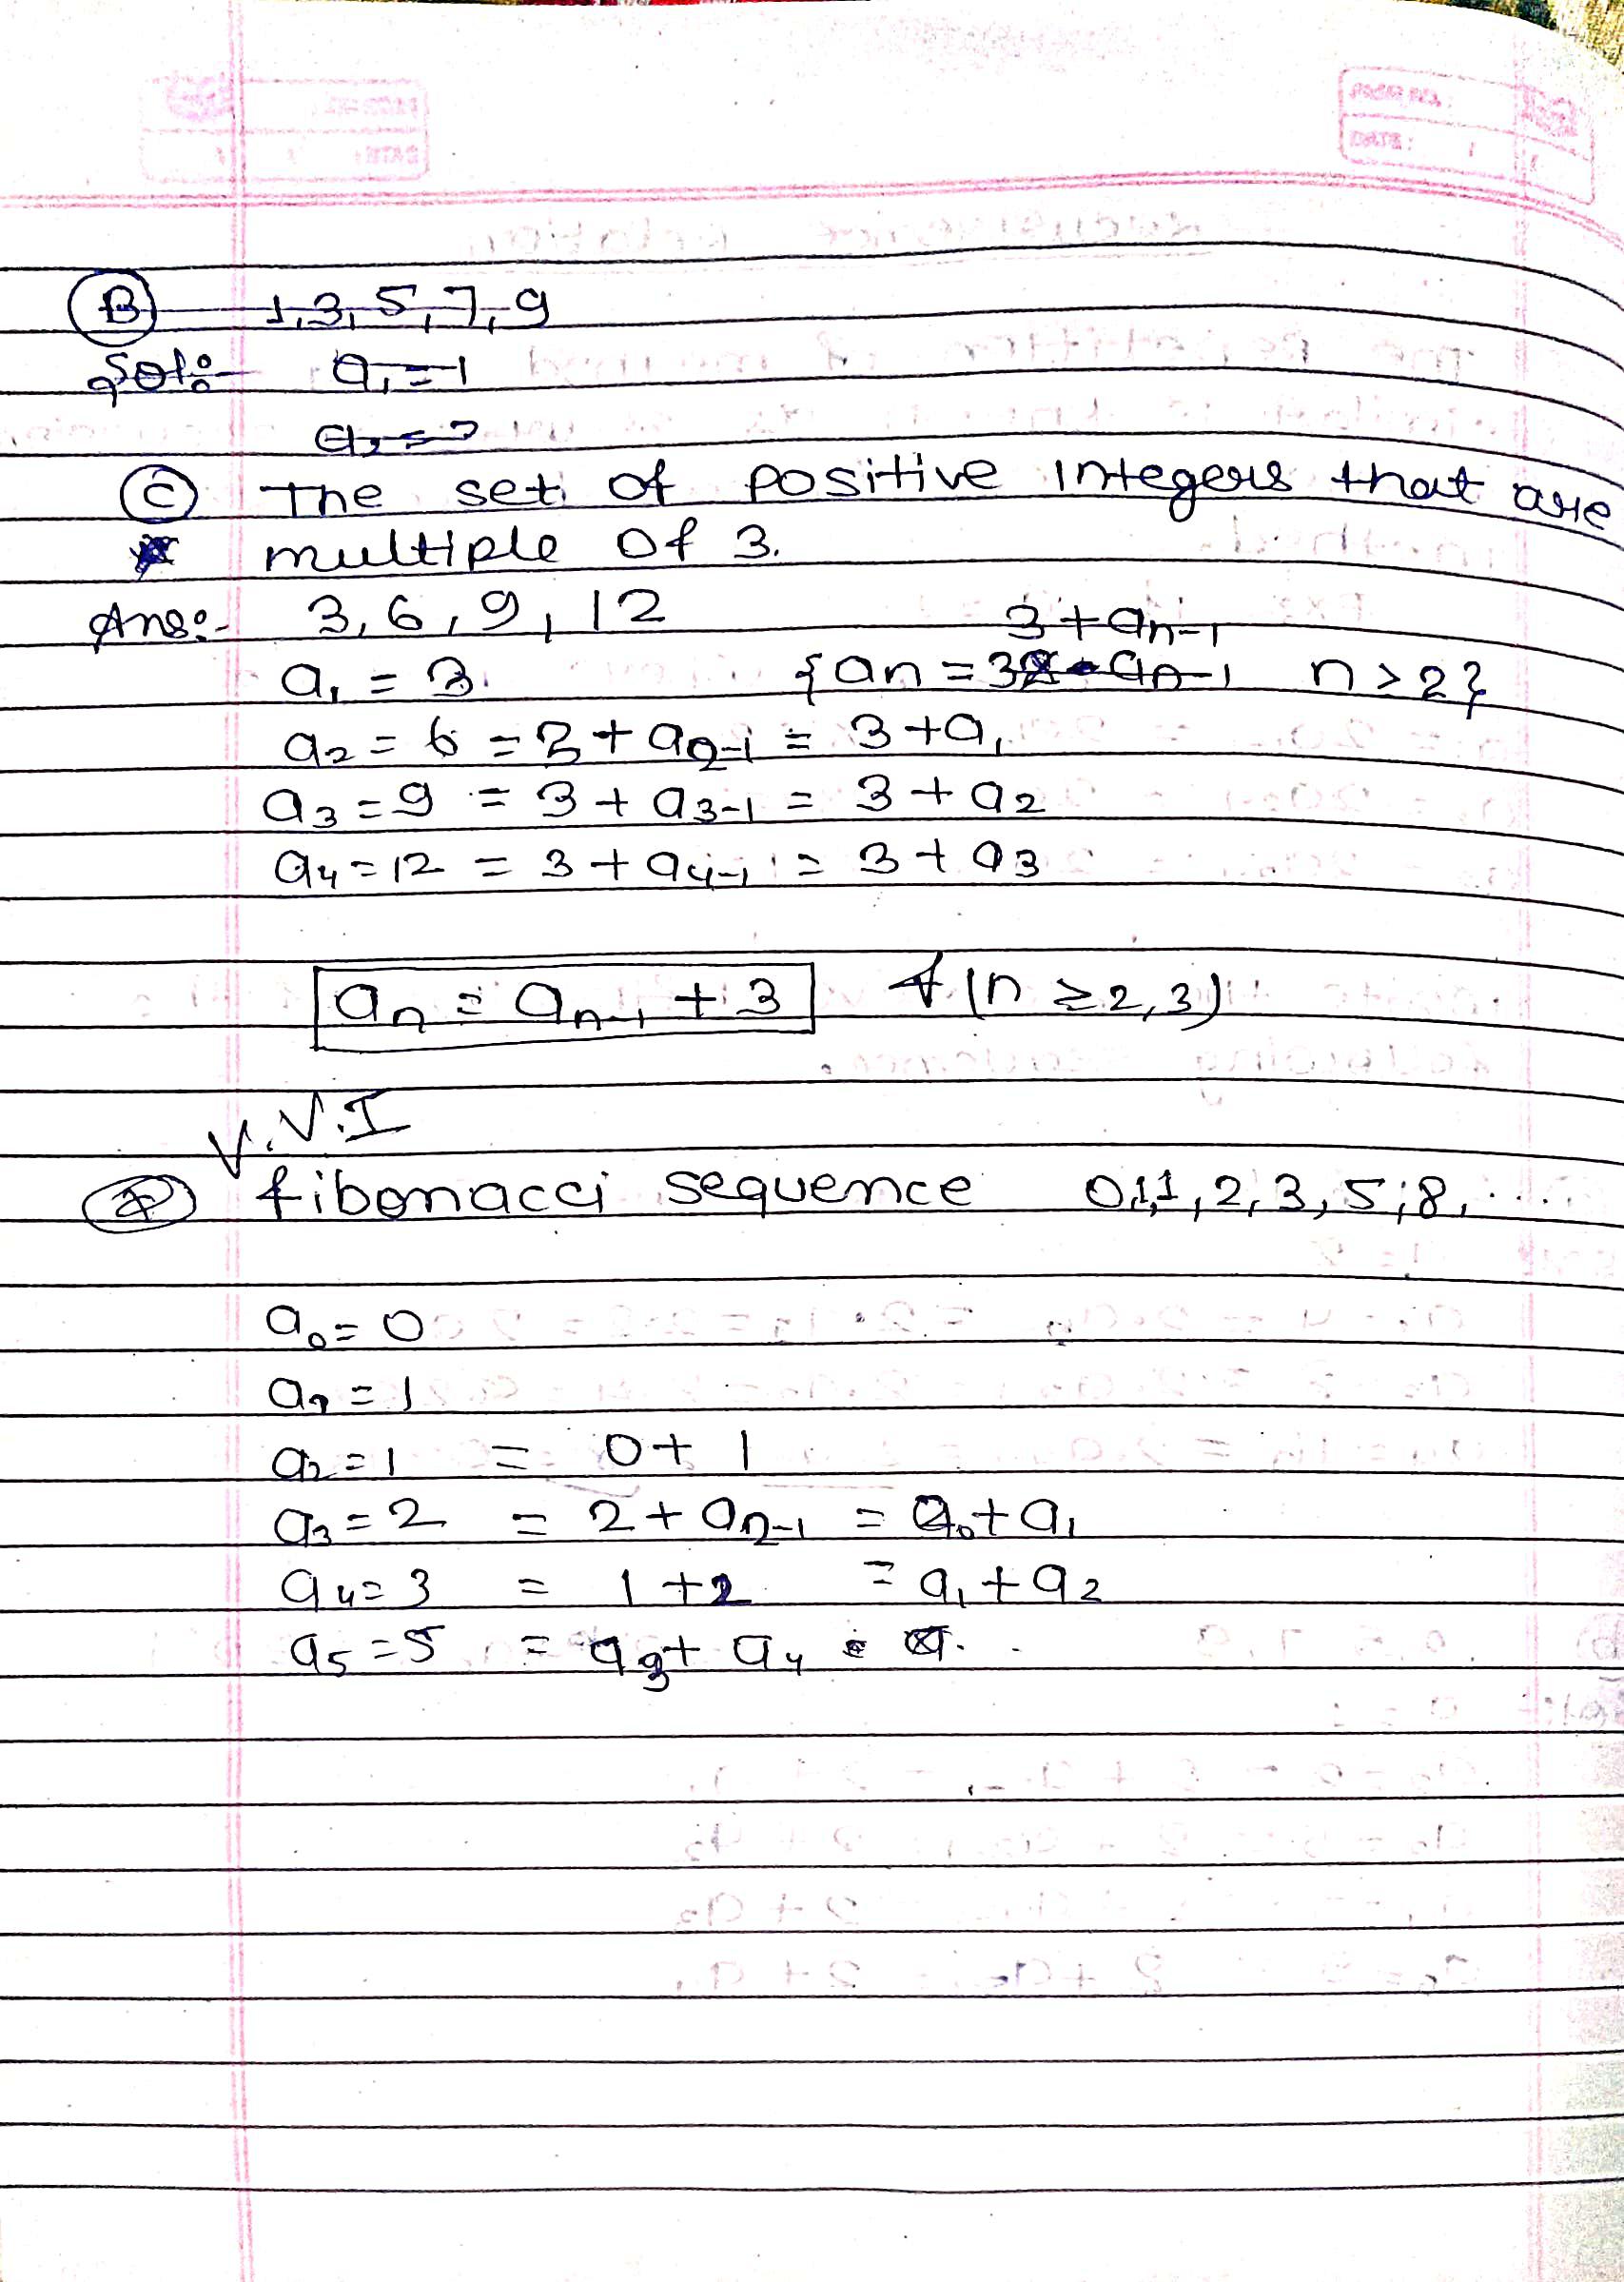 PAGE NO.:
DATE: / /
B 1,3,5,7,9
Sol:- a₁=1
a₂=3
C The set of positive integers that are
multiple of 3.
Ans:- 3,6,9,12 3+aₙ₋₁
a₁ = 3. {an = 3 aₙ₋₁ n>2}
a₂ = 6 = 3 + a₂₋₁ = 3+a₁
a₃ = 9 = 3 + a₃₋₁ = 3 + a₂
a₄ = 12 = 3 + a₄₋₁ = 3 + a₃
aₙ = aₙ₋₁ + 3 ∀ (n ≥ 2,3)
V.V.I
fibonacci sequence 0,1,1,2,3,5,8,....
a₀ = 0
a₁ = 1
a₂ = 1 = 0 + 1
a₃ = 2 = 2 + a₂₋₁ = a₀ + a₁
a₄ = 3 = 1 + 2 = a₁ + a₂
a₅ = 5 = a₃ + a₄ =